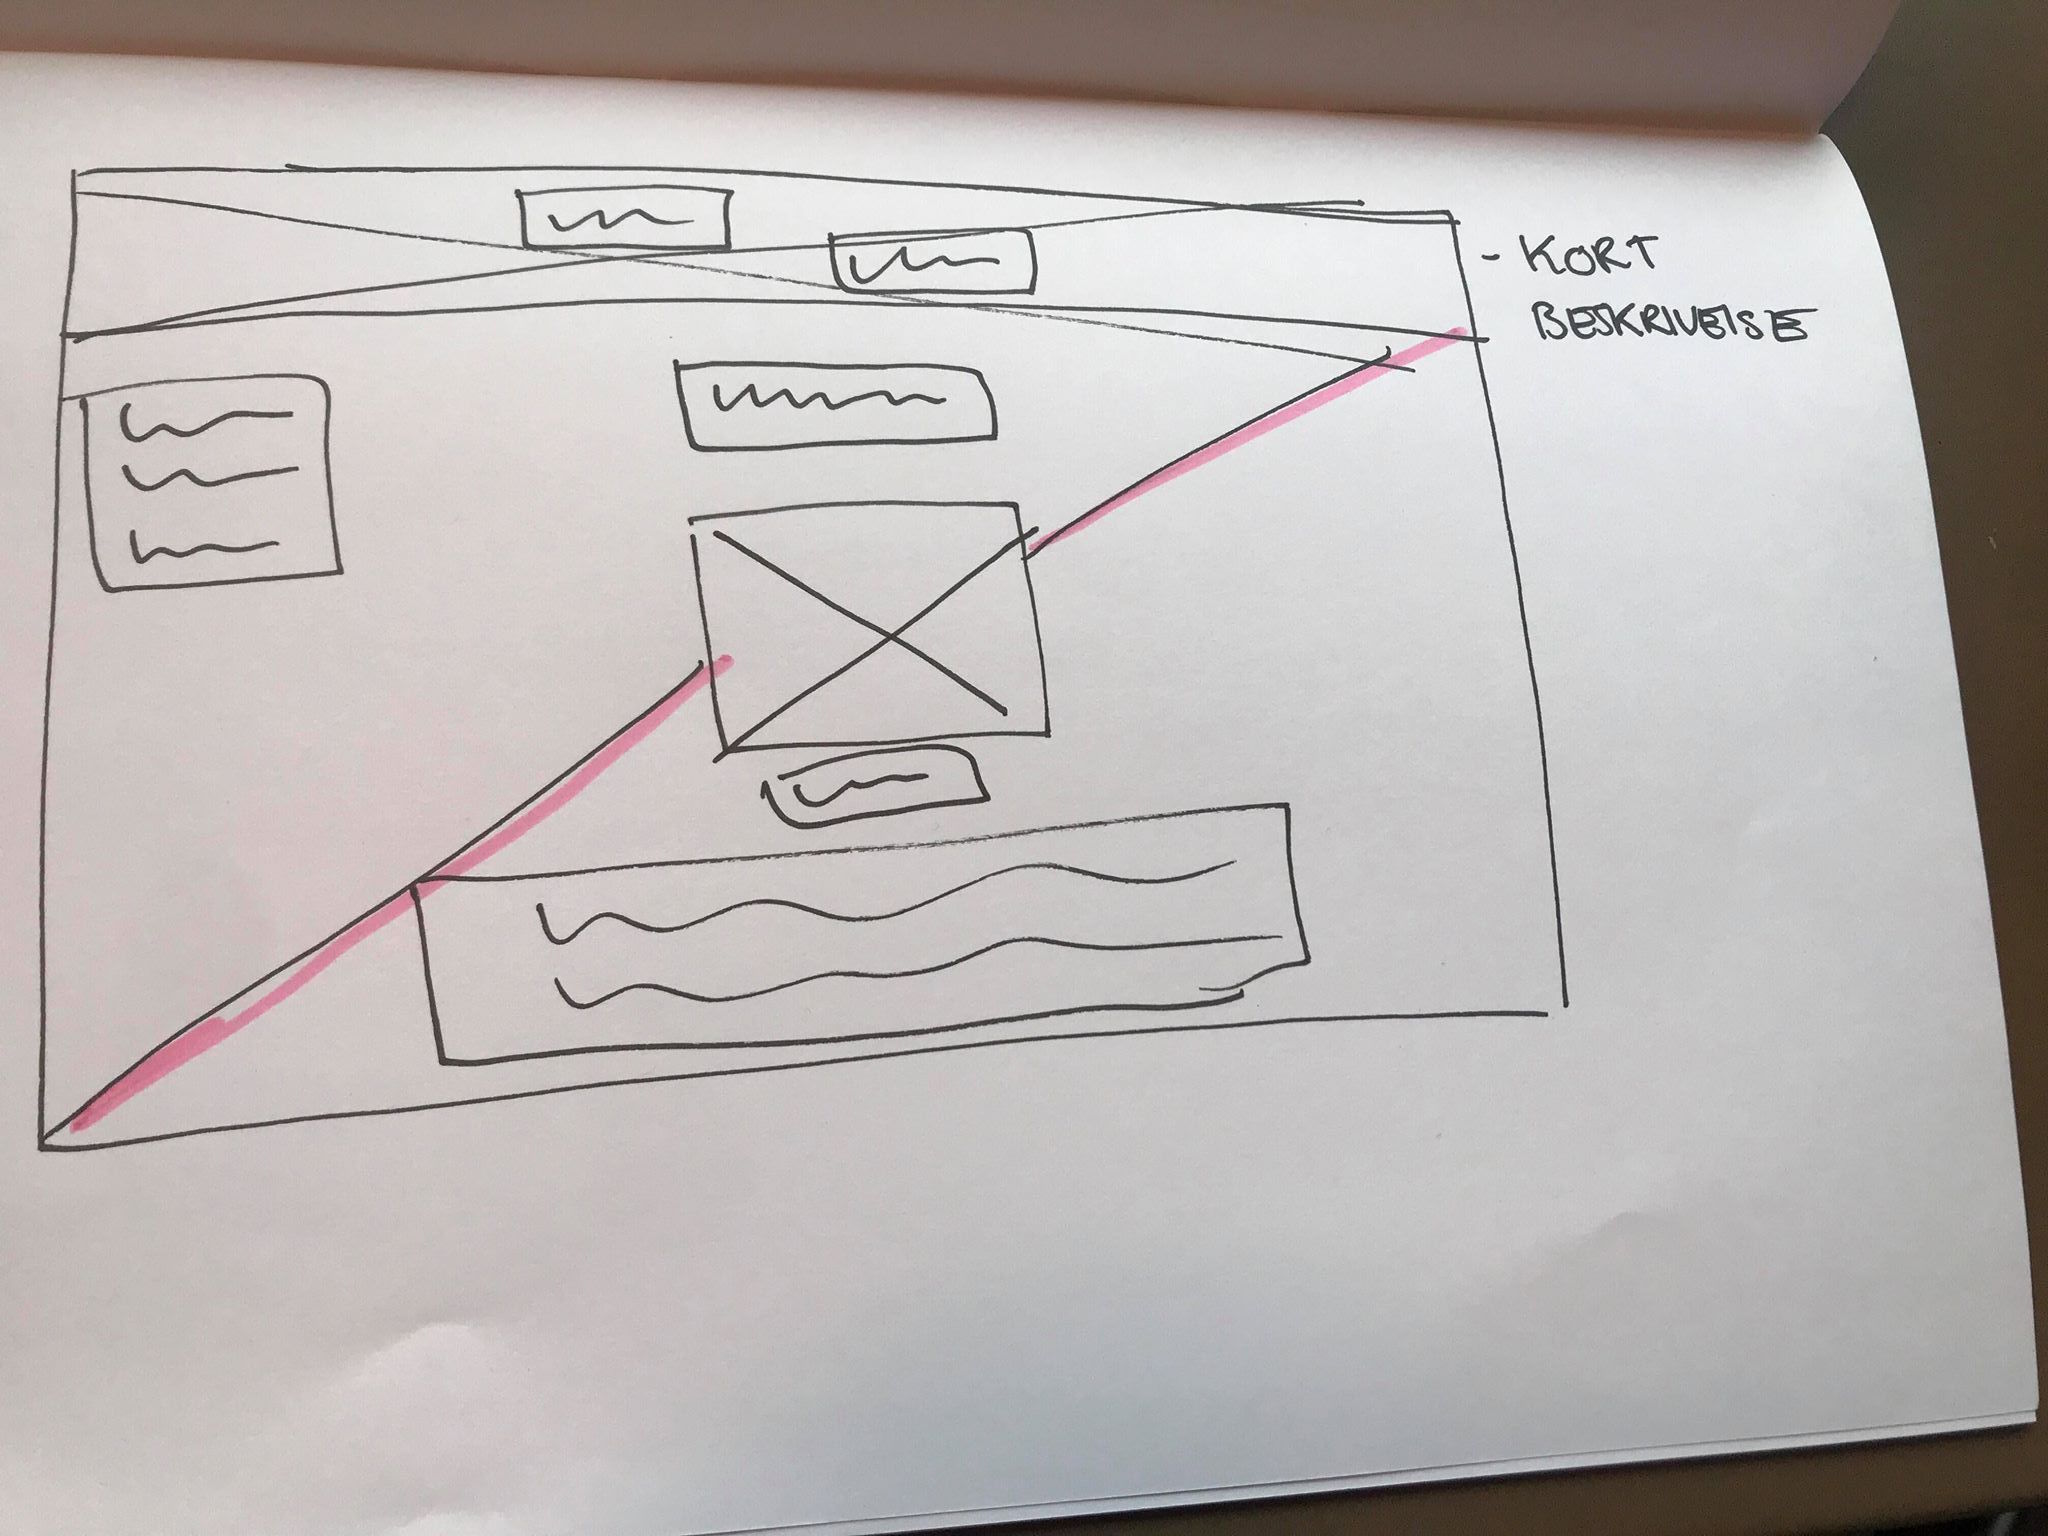 - KORT
BESKRIVELSE